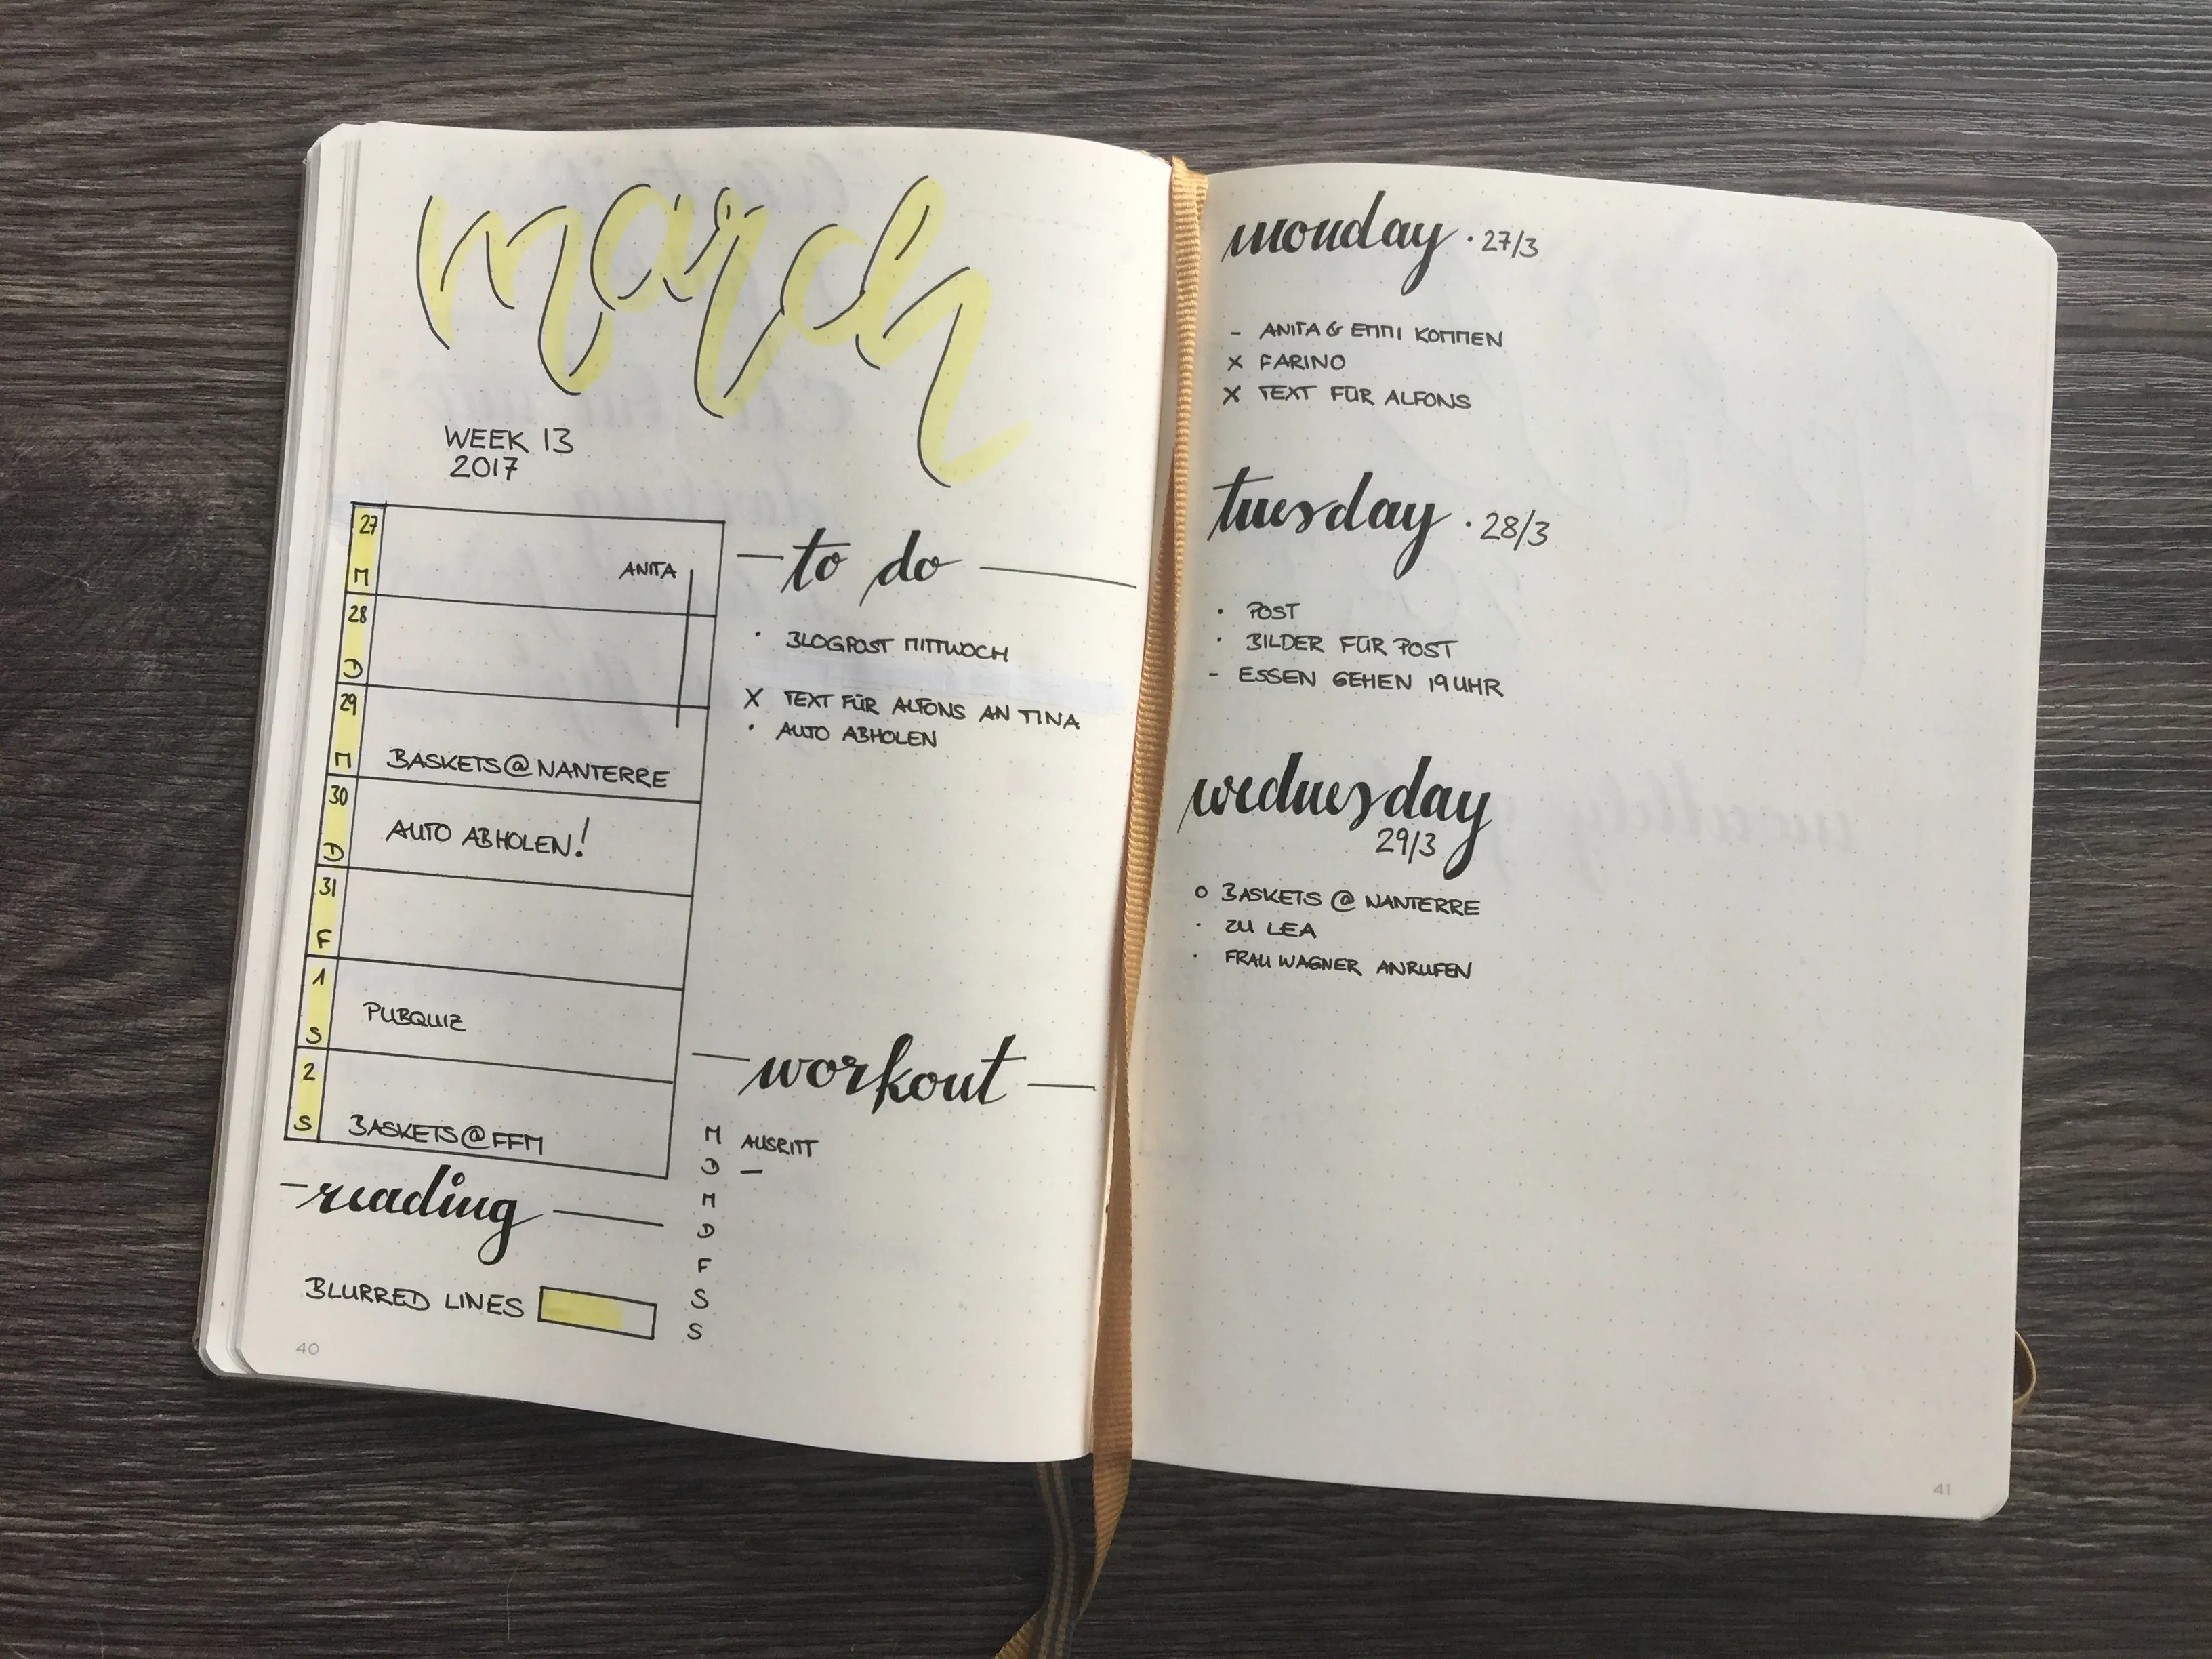 march
WEEK 13
2017
27
M
ANITA
28
D
29
M
BASKETS@NANTERRE
30
D
AUTO ABHOLEN!
31
F
1
S
PUBQUIZ
2
S
BASKETS@FFM
reading
BLURRED LINES
40
to do
· BLOGPOST MITTWOCH
X TEXT FÜR ALFONS AN TINA
· AUTO ABHOLEN
workout
M AUSRITT
D –
M
D
F
S
S
monday · 27/3
– ANITA & EMMI KOMMEN
X FARINO
X TEXT FÜR ALFONS
tuesday · 28/3
· POST
· BILDER FÜR POST
– ESSEN GEHEN 19 UHR
wednesday
29/3
o BASKETS @ NANTERRE
· ZU LEA
· FRAU WAGNER ANRUFEN
41